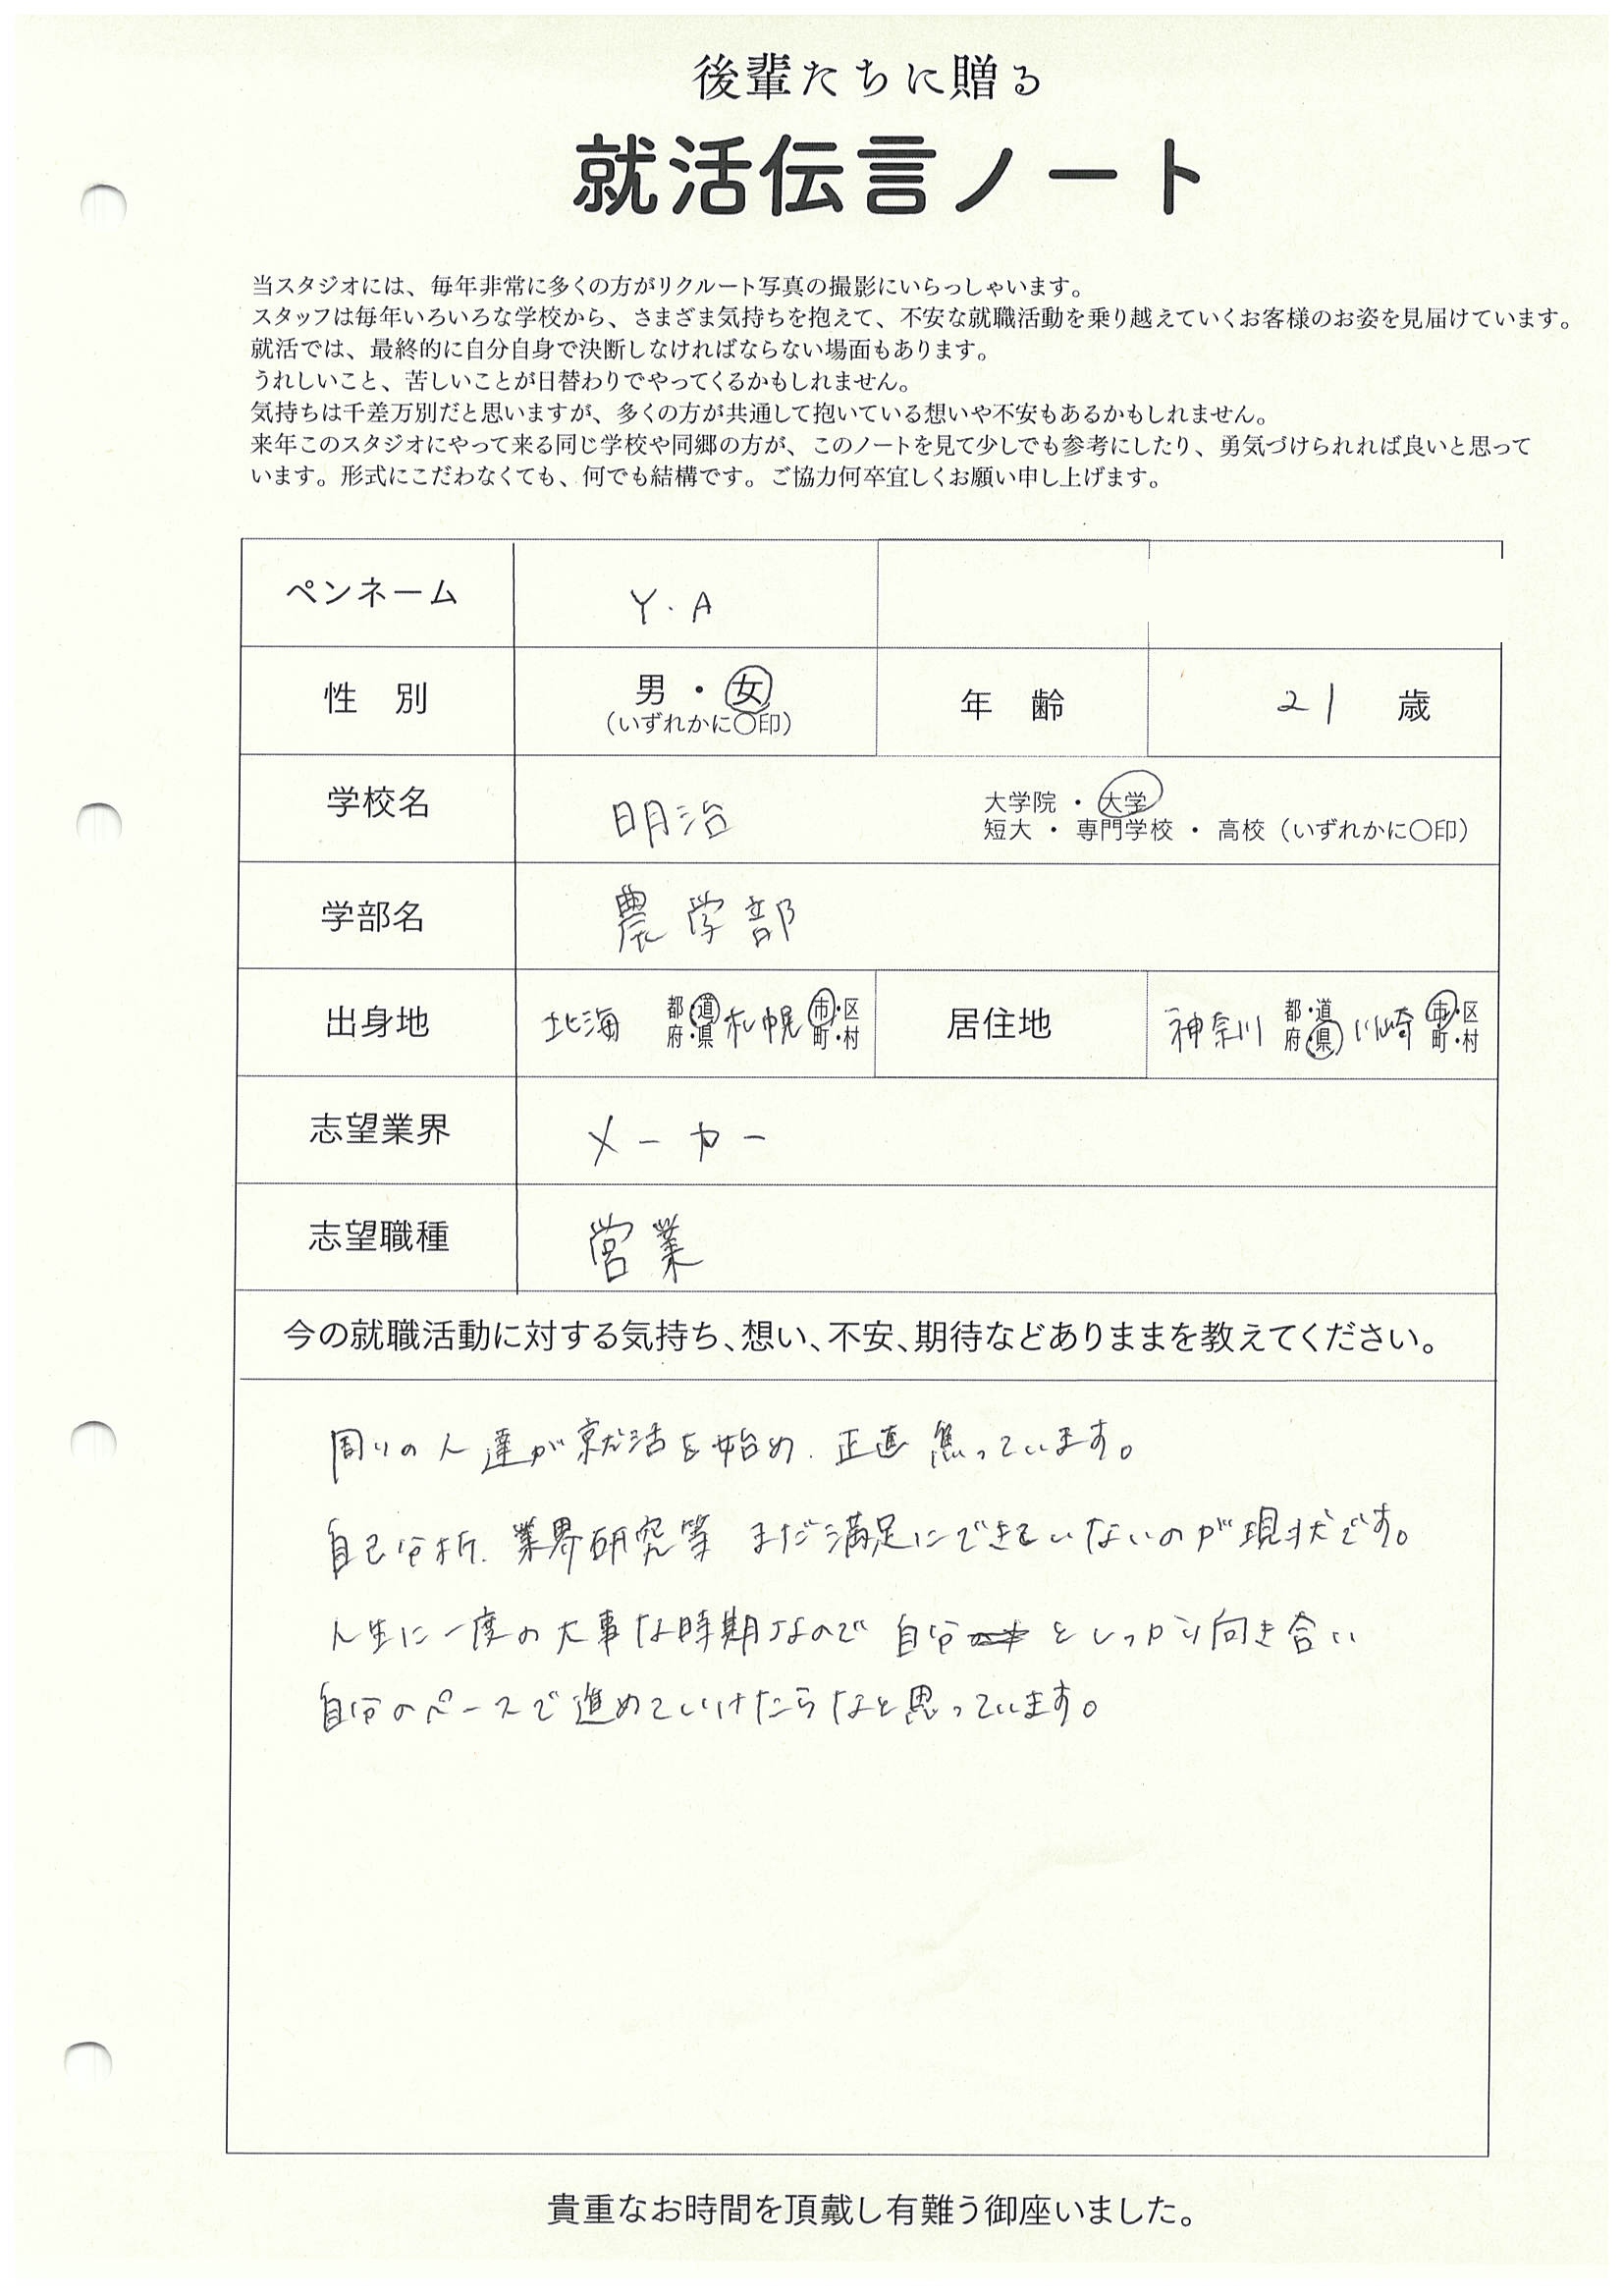 後輩たちに贈る
就活伝言ノート
当スタジオには、毎年非常に多くの方がリクルート写真の撮影にいらっしゃいます。
スタッフは毎年いろいろな学校から、さまざま気持ちを抱えて、不安な就職活動を乗り越えていくお客様のお姿を見届けています。
就活では、最終的に自分自身で決断しなければならない場面もあります。
うれしいこと、苦しいことが日替わりでやってくるかもしれません。
気持ちは千差万別だと思いますが、多くの方が共通して抱いている想いや不安もあるかもしれません。
来年このスタジオにやって来る同じ学校や同郷の方が、このノートを見て少しでも参考にしたり、勇気づけられれば良いと思って
います。形式にこだわなくても、何でも結構です。ご協力何卒宜しくお願い申し上げます。
ペンネーム Y.A
性 別 男・女 年 齢 21 歳
(いずれかに〇印)
学校名 明治 大学院・大学
短大・専門学校・高校(いずれかに〇印)
学部名 農学部
出身地 北海 都・道 府・県 札幌 市・区 町・村 居住地 神奈川 都・道 府・県 川崎 市・区 町・村
志望業界 メーカー
志望職種 営業
今の就職活動に対する気持ち、想い、不安、期待などありままを教えてください。
周りの人達が就活を始め、正直焦っています。
自己分析、業界研究等 まだ満足にできていないのが現状です。
人生に一度の大事な時期なので 自分としっかり向き合い
自分のペースで進めていけたらなと思っています。
貴重なお時間を頂戴し有難う御座いました。